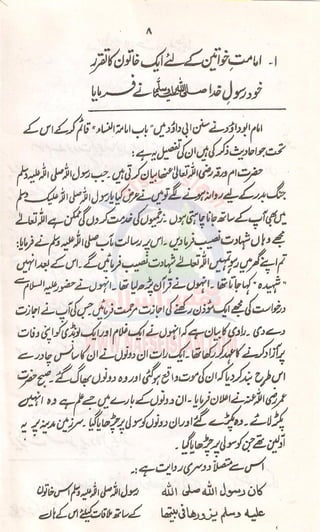 ۸
۱۔ امامتِ خواتین کے لئے ایک خاتون کا تقرر
خود رسولِ خدا صلی اللہ علیہ وسلم نے فرمایا
امام ابو داؤد نے سنن ابی داؤد میں "باب امامۃ النساء" قائم کرکے اس کے
تحت جو احادیث ذکر کی ہیں ان کی تفصیل یہ ہے:
حضرت ام ورقہ رضی اللہ تعالیٰ عنھا بیان کرتی ہیں۔ جب رسول اللہ صلی اللہ علیہ وسلم
جنگ بدر کے لیے روانہ ہونے لگے تو میں نے عرض کیا یا رسول اللہ صلی اللہ علیہ وسلم
میں بھی آپ کے ساتھ جانا چاہتی ہوں۔ زخمیوں کی خدمت کروں گی ممکن ہے اللہ تعالےٰ
مجھے وہاں شہادت نصیب فرما دیں۔ اس پر رسالت مآب صلی اللہ علیہ وسلم نے فرمایا:
تم اپنے گھر میں رہو تمہیں اللہ تعالےٰ شہادت نصیب فرمائیں گے۔ اس کے بعد انہیں
"شھیدہ" کہا جاتا تھا۔ انہوں نے قرآن پڑھ لیا تھا۔ انہوں نے حضور علیہ السلام سے
درخواست کی مجھے ایک مؤذن رکھنے کی اجازت مرحمت فرمائیں جس کی آپ نے اجازت
دے دی۔ راوی کا بیان ہے کہ انہوں نے ایک غلام اور ایک لونڈی کو اپنی وفات
پر آزاد کرنے کا عہد کر رکھا تھا۔ ایک رات ان دونوں نے ان کا سانس چادر سے
اس طرح بند کر دیا کہ ان کی موت واقع ہو گئی اور وہ دونوں بھاگ گئے۔ صبح حضرت
عمر رضی اللہ عنہ نے اعلان فرمایا۔ ان دونوں کے بارے میں جسے علم ہے وہ انہیں
پکڑ لائے۔ وہ پکڑے گئے اور ان دونوں کو سولی پر چڑھایا گیا۔ سرزمینِ مدینہ پر یہ
اوّلین تھے جن کو سولی پر چڑھایا گیا۔
اس سے متصلاً دوسری روایت ہے:۔
کان رسول اللہ صلی اللہ رسول اللہ صلی اللہ علیہ وسلم اس خاتون
علیہ وسلم یزورھا فی بیتھا کے ساتھ ملاقات کیلئے اس کے ہاں